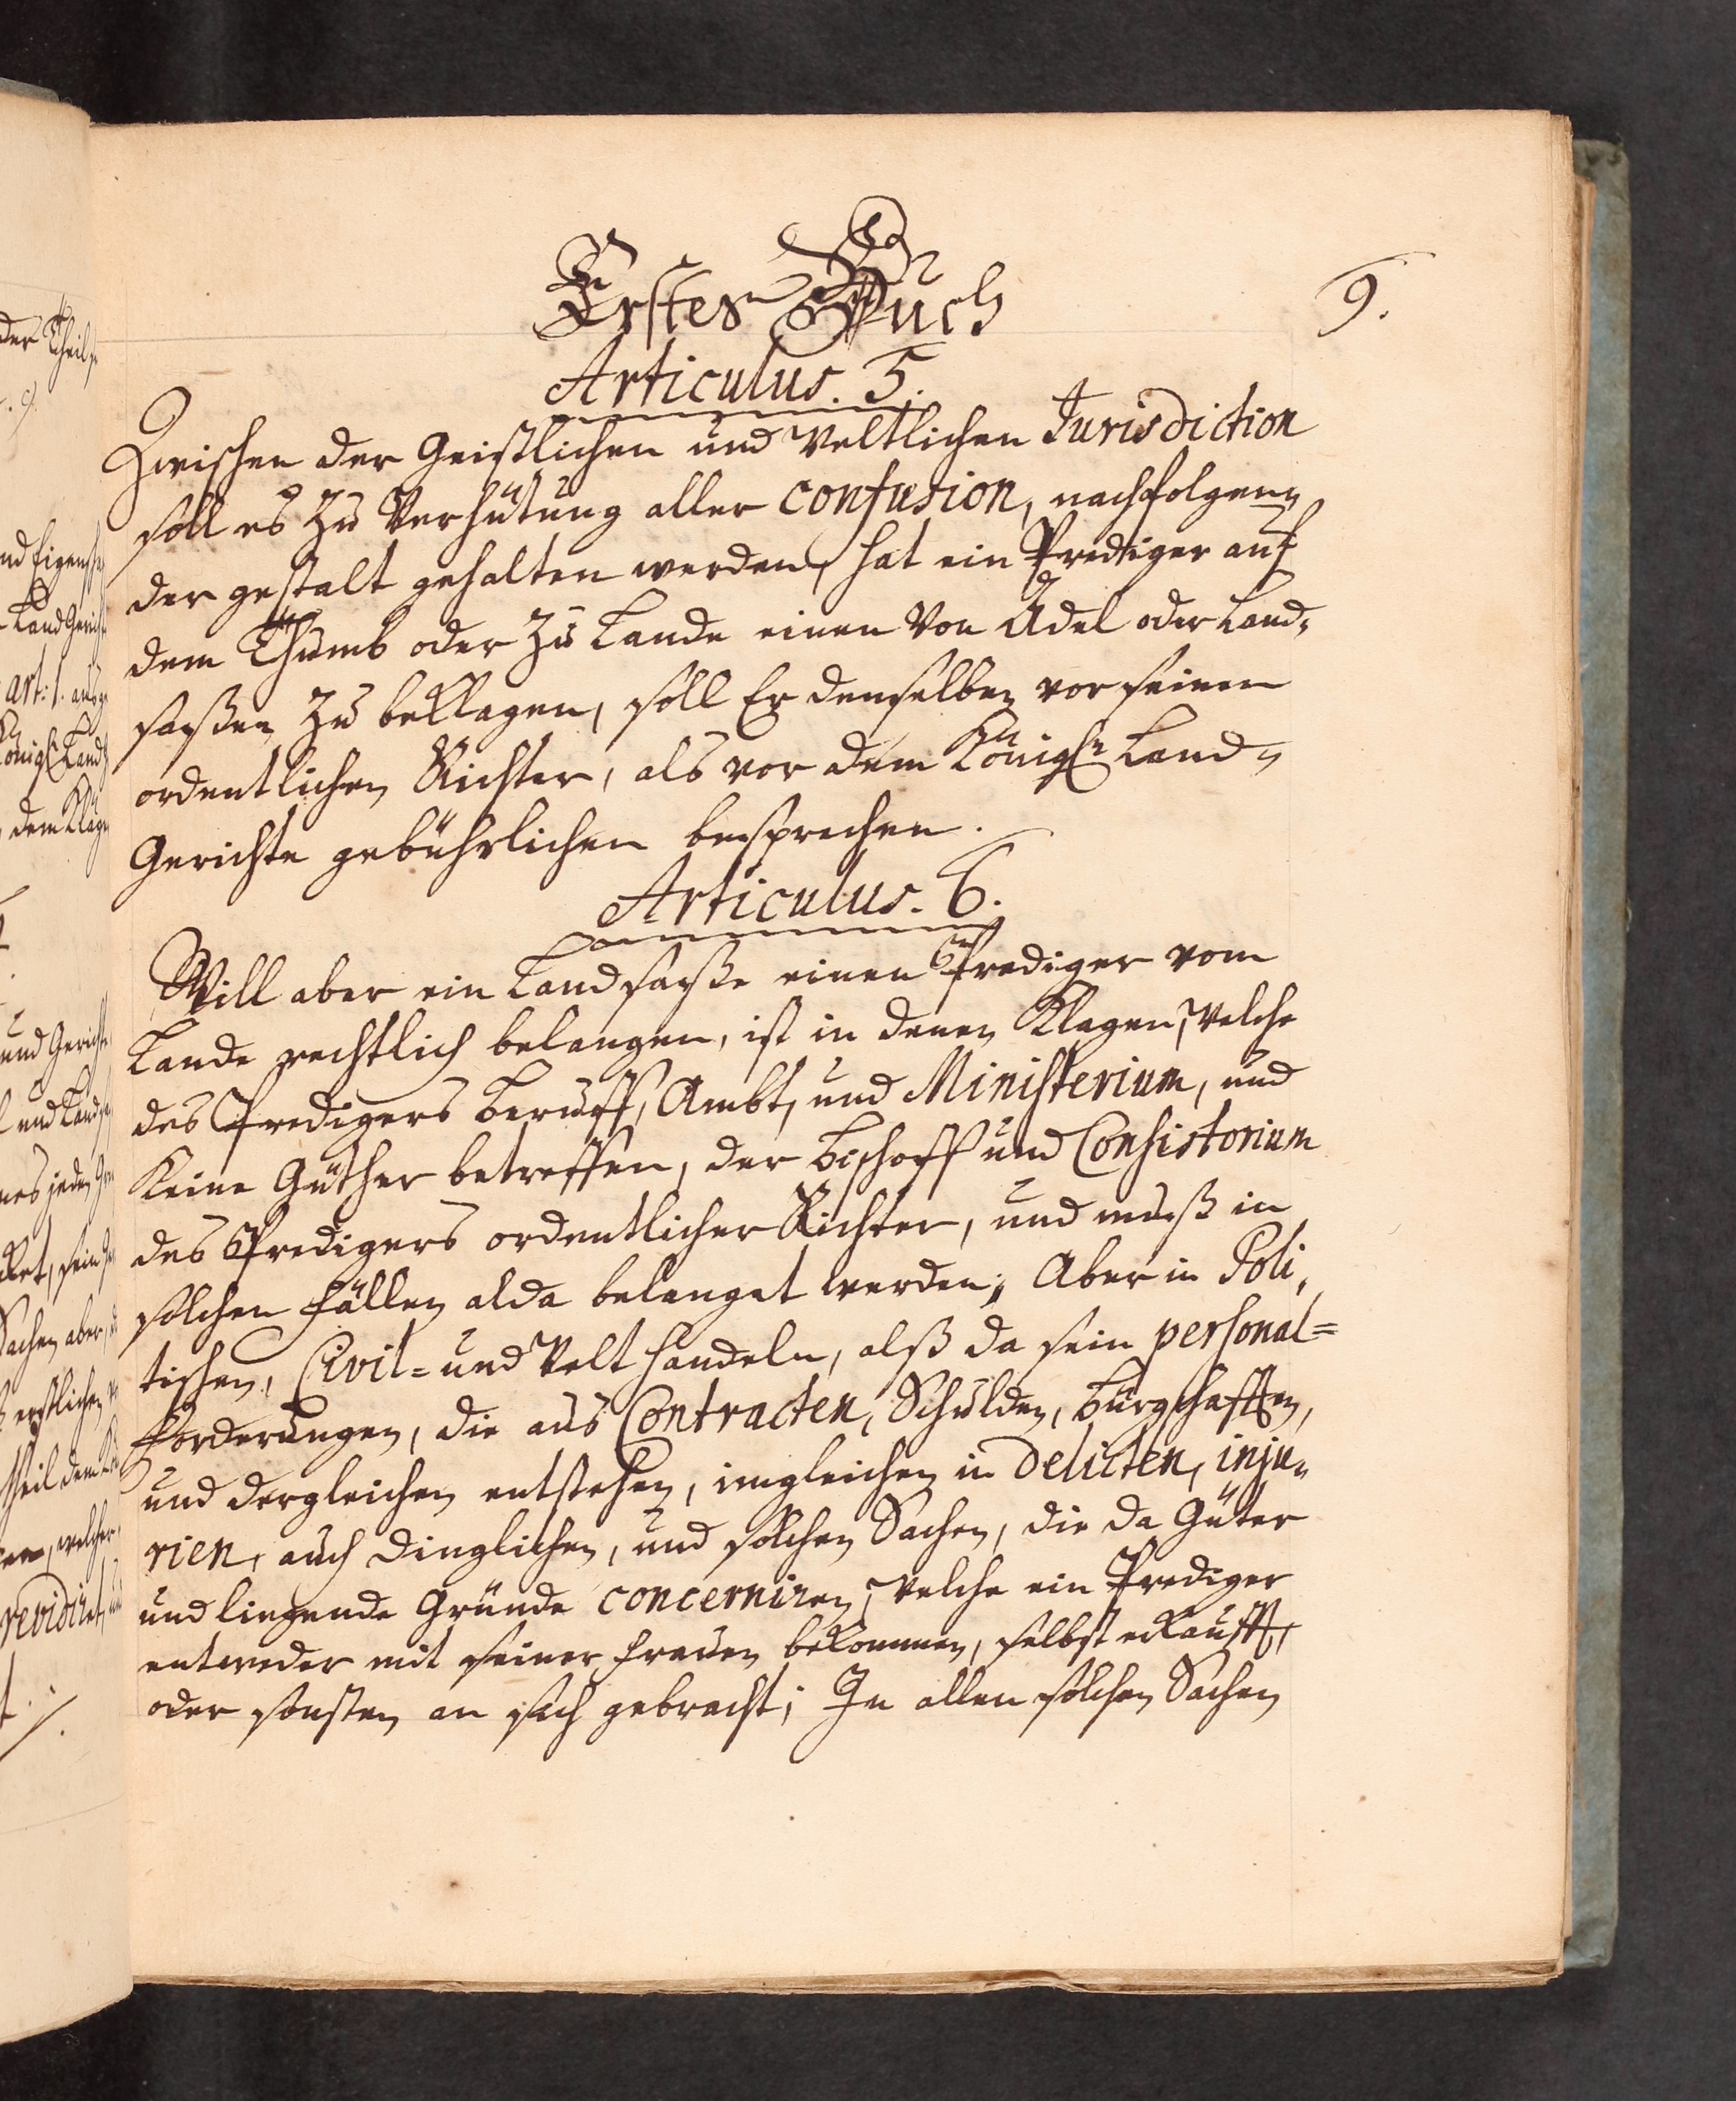 Erstes Buch
9.
Articulus. 5.
Zwischen der Geistlichen und Weltlichen Jurisdiction
soll es zu Verhütung aller confusion, nachfolgen„
der gestalt gehalten werden, hat ein Prediger auf
dem Thumb oder zu Lande einen von Adel oder Land„
saßen zu beklagen, soll Er denselben vor seinen
ordentlichen Richter, als vor dem Königln Land„
Gerichte gebührlichen besprechen.
Articulus. 6.
Will aber ein Landsaße einen Prediger vom
Lande rechtlich belangen, ist in denen Klagen, Welche
des Predigers Beruff, Ambt, und Ministerium, und
Keine Güther betreffen, der Bischoff und Consistorium
des Predigers ordentlicher Richter, und muß in
solchen fällen alda belanget werden; Aber in Poli„
tischen, Civil= und Welt handeln, alß da sein personal=
forderungen, die aus Contracten, Schulden, Bürgschafften,
und dergleichen entstehen, imgleichen in Delicten, inju„
rien, auch dinglichen, und solchen Sachen, die da Güter
und liegende Gründe concerniren, Welche ein Prediger
entweder mit seiner frauen bekommen, selbst erkaufft,
oder sonsten an sich gebracht; In allen solchen Sachen
der Theil
Land Gerich
art: 1.
dem Klag
und Gerich
und Land
nes jeden
Sachen aber,
theil dem
welcher
revidiret,